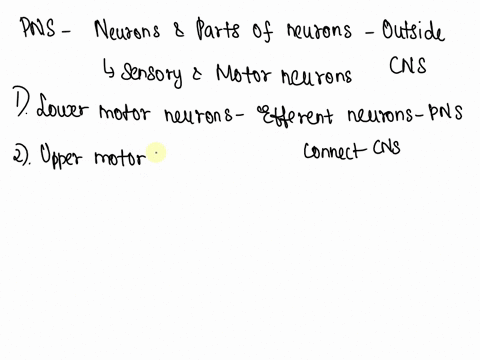 PNS - Neurons & Parts of neurons - Outside
↳ Sensory & Motor neurons CNS
1). Lower motor neurons - efferent neurons - PNS
2). Upper motor connect CNS